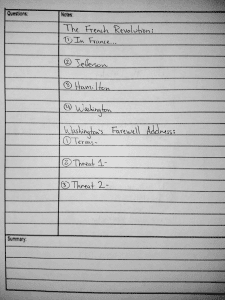 Questions:
Notes:
The French Revolution:
① In France...
② Jefferson
③ Hamilton
④ Washington
Washington's Farewell Address:
① Terms-
② Threat 1-
③ Threat 2-
Summary: